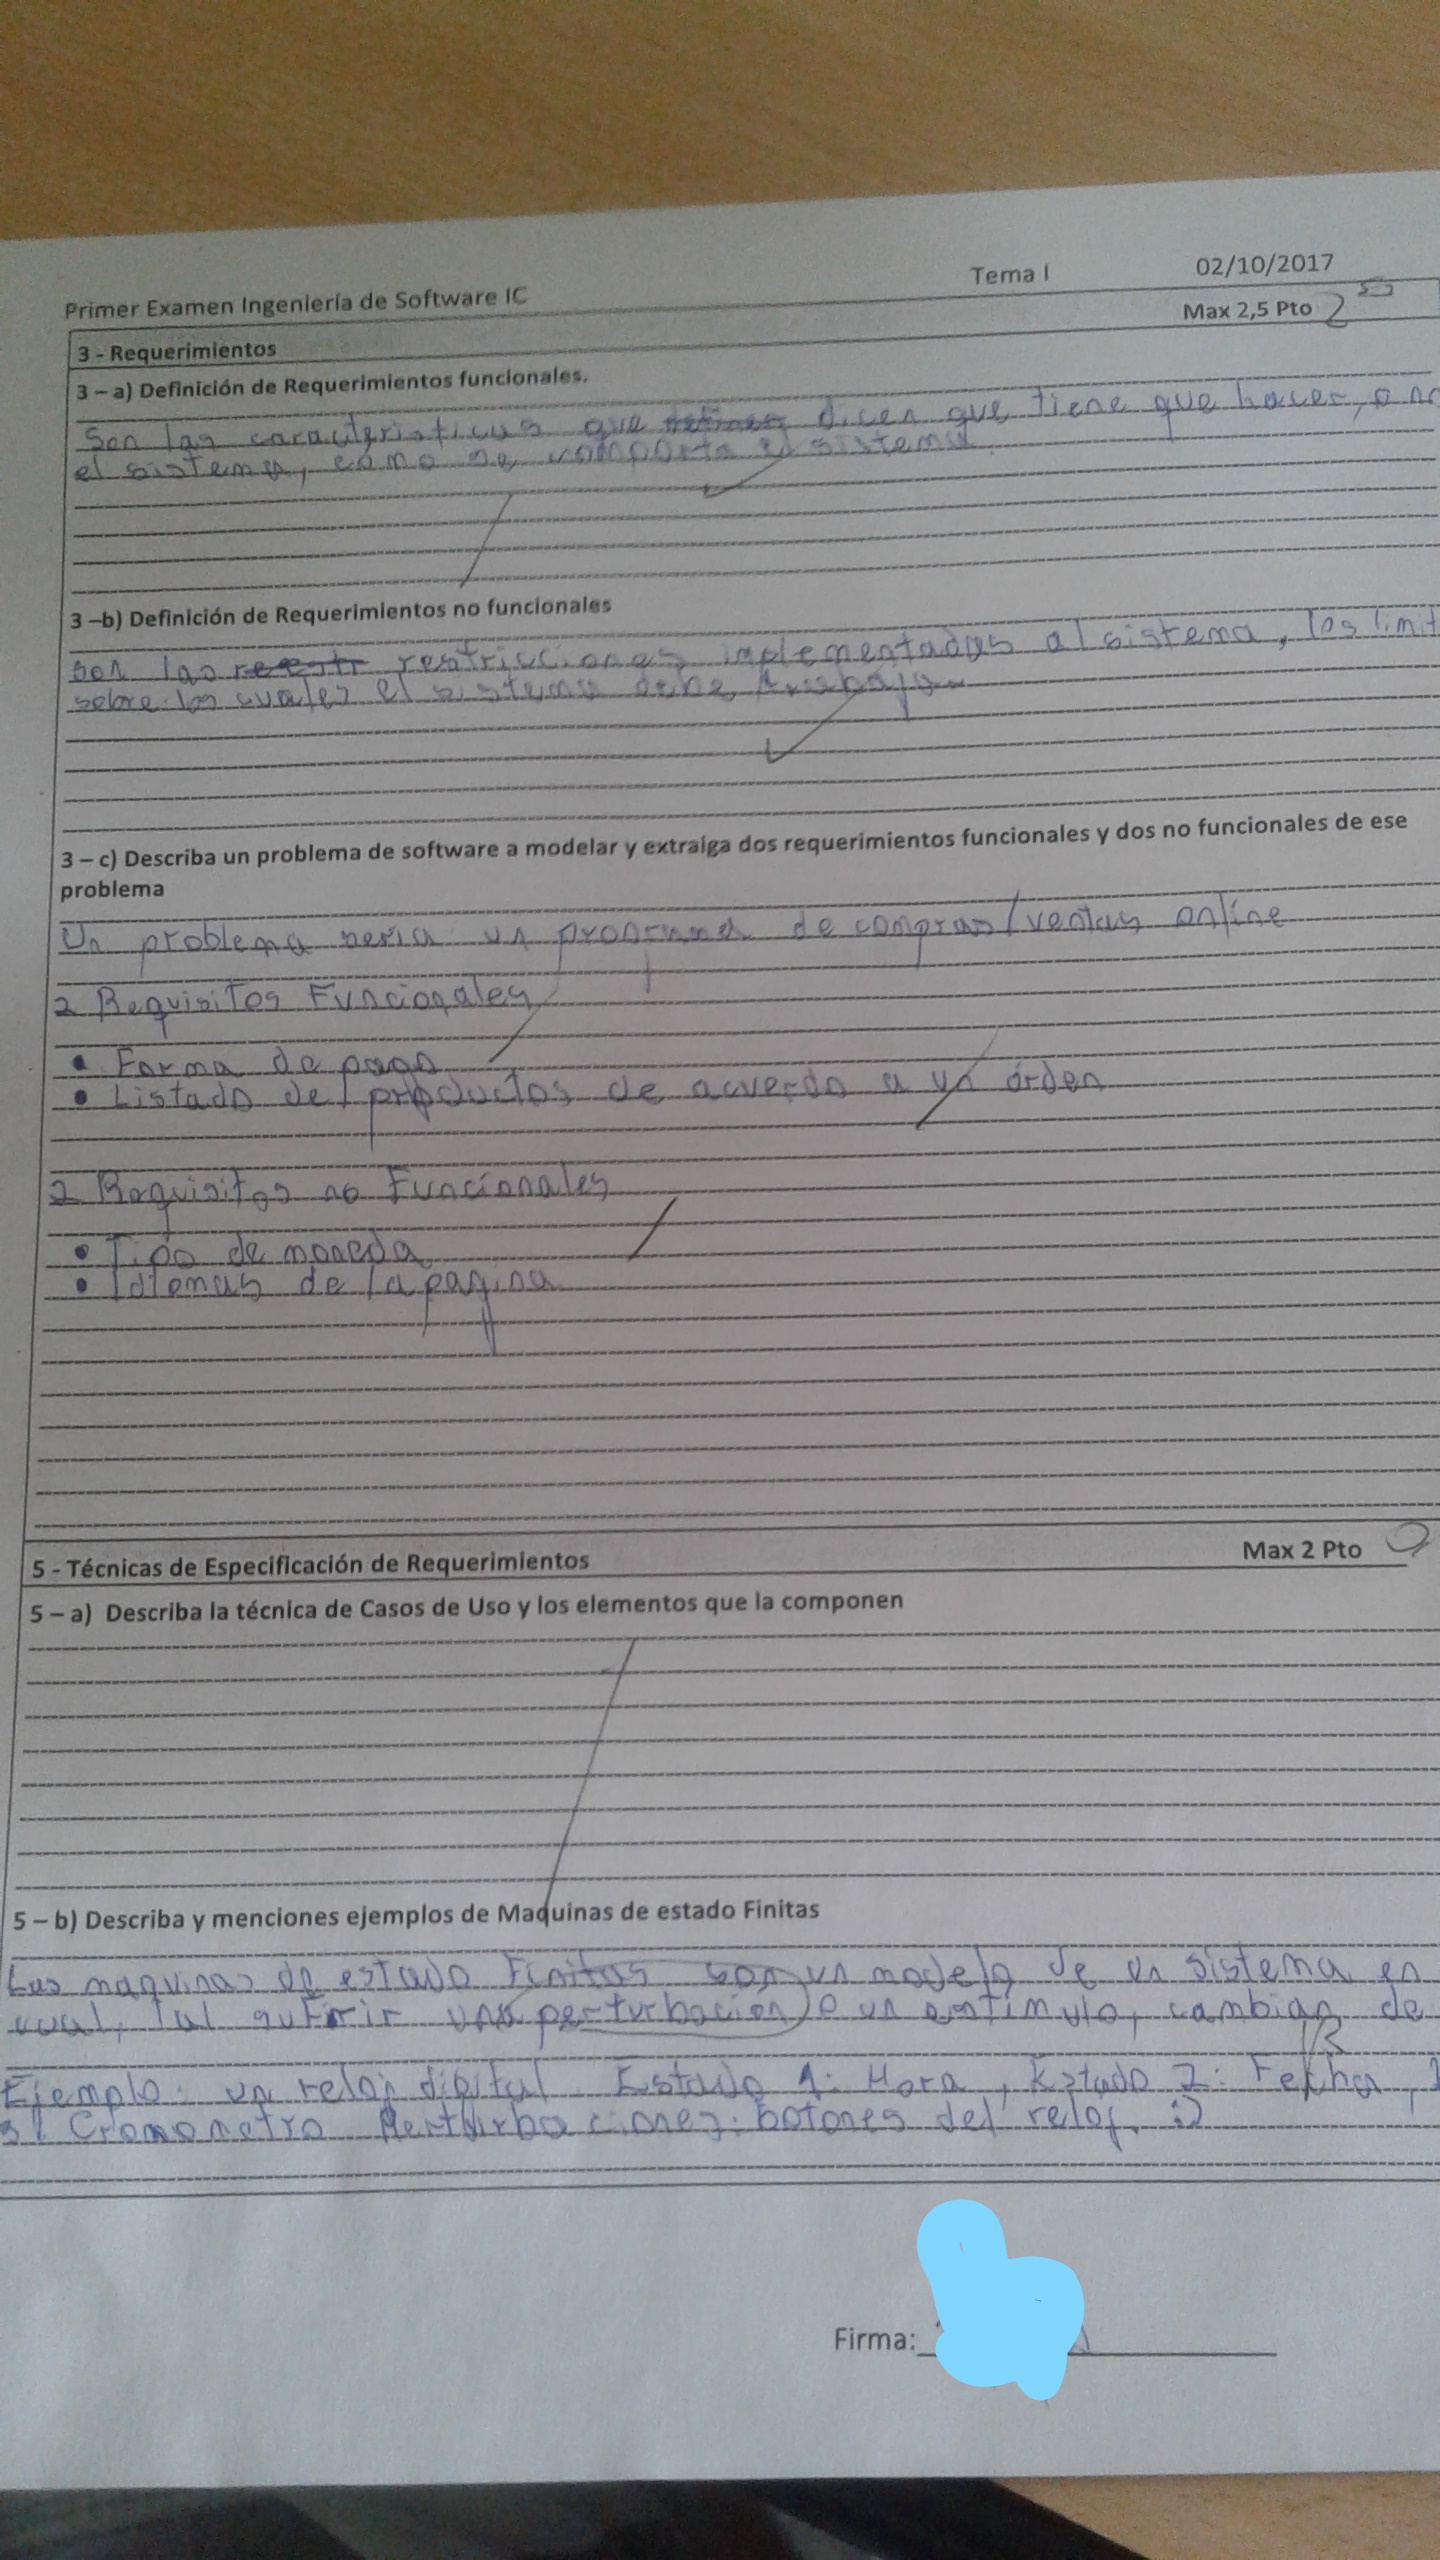 Primer Examen Ingeniería de Software IC Tema I 02/10/2017
3 - Requerimientos Max 2,5 Pto 2
3 – a) Definición de Requerimientos funcionales.
Son las características que dicen que tiene que hacer, o no
el sistema, como se comporta el sistema.
3 –b) Definición de Requerimientos no funcionales
Son las restricciones implementados al sistema, los limit
sobre los cuales el sistema debe
3 – c) Describa un problema de software a modelar y extraiga dos requerimientos funcionales y dos no funcionales de ese
problema
Un problema seria un programa de compras/ventas online
2 Requisitos Funcionales
• Forma de pago
• Listado de productos de acuerdo a un órden
2 Requisitos no Funcionales
• Tipo de moneda
• Idiomas de la pagina
5 - Técnicas de Especificación de Requerimientos Max 2 Pto
5 – a) Describa la técnica de Casos de Uso y los elementos que la componen
5 – b) Describa y menciones ejemplos de Maquinas de estado Finitas
Las maquinas de estado Finitas son un modelo de un sistema en
cual, al sufrir una perturbacion o un estímulo, cambian de
Ejemplo: un reloj digital Estado 1: Hora, Estado 2: Fecha,
3: Cronometro Perturbaciones: botones del reloj. :)
Firma: